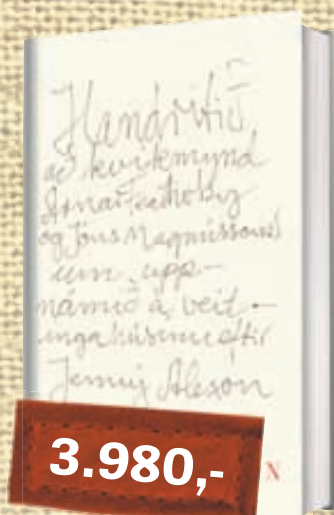 Handritið
að kvikmynd
Arnar Featherby
og Jóns Magnússonar
um upp-
námið á veit-
ingahúsinu eftir
Jenný Alexson
3.980,-
N